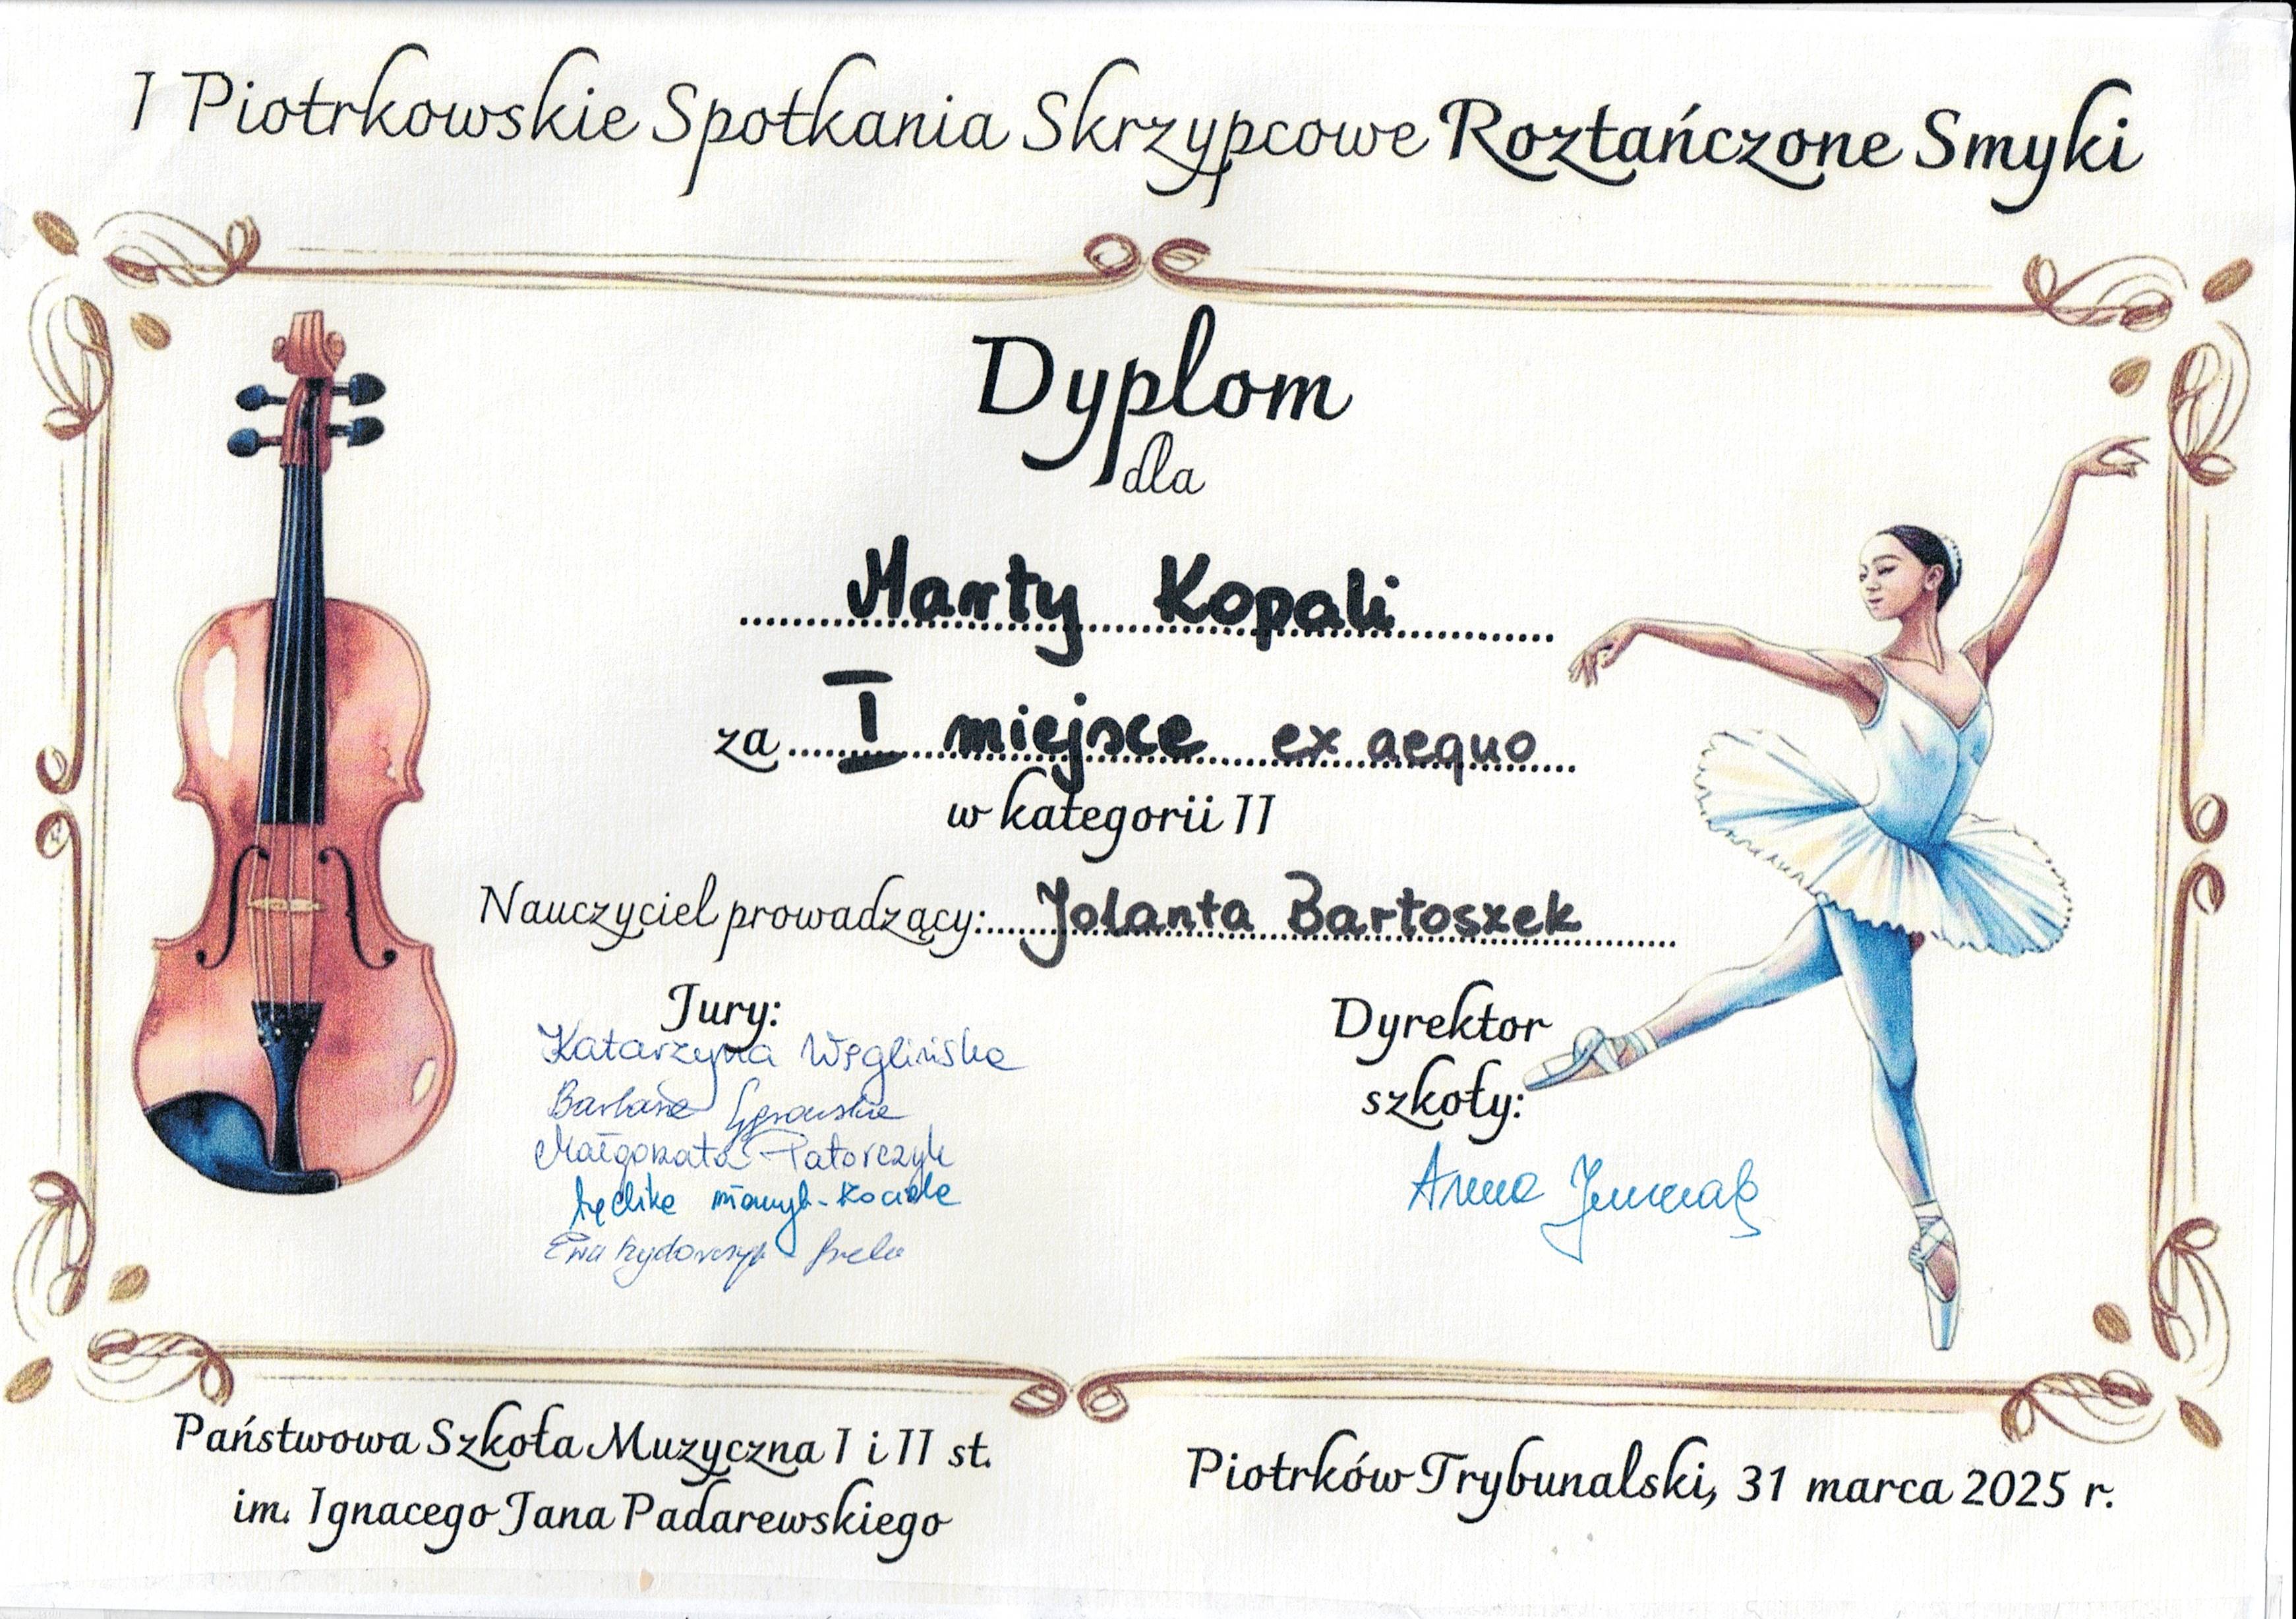 I Piotrkowskie Spotkania Skrzypcowe Roztańczone Smyki
Dyplom
dla
Marty Kopali
za I miejsce ex aequo
w kategorii II
Nauczyciel prowadzący: Jolanta Bartoszek
Jury:
Katarzyna Węglińska
Barbara
Małgorzata Patorczyk
Ewa
Dyrektor
szkoły:
Anna
Państwowa Szkoła Muzyczna I i II st.
im. Ignacego Jana Padarewskiego
Piotrków Trybunalski, 31 marca 2025 r.